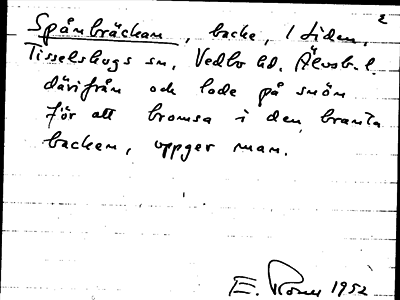 2
Spånbräckan, backe, i Liden,
Tisselskogs sn, Vedbo hd. Älvsb. l.
därifrån och lade på snön
för att bromsa i den branta
backen, uppger man.
E. 1952